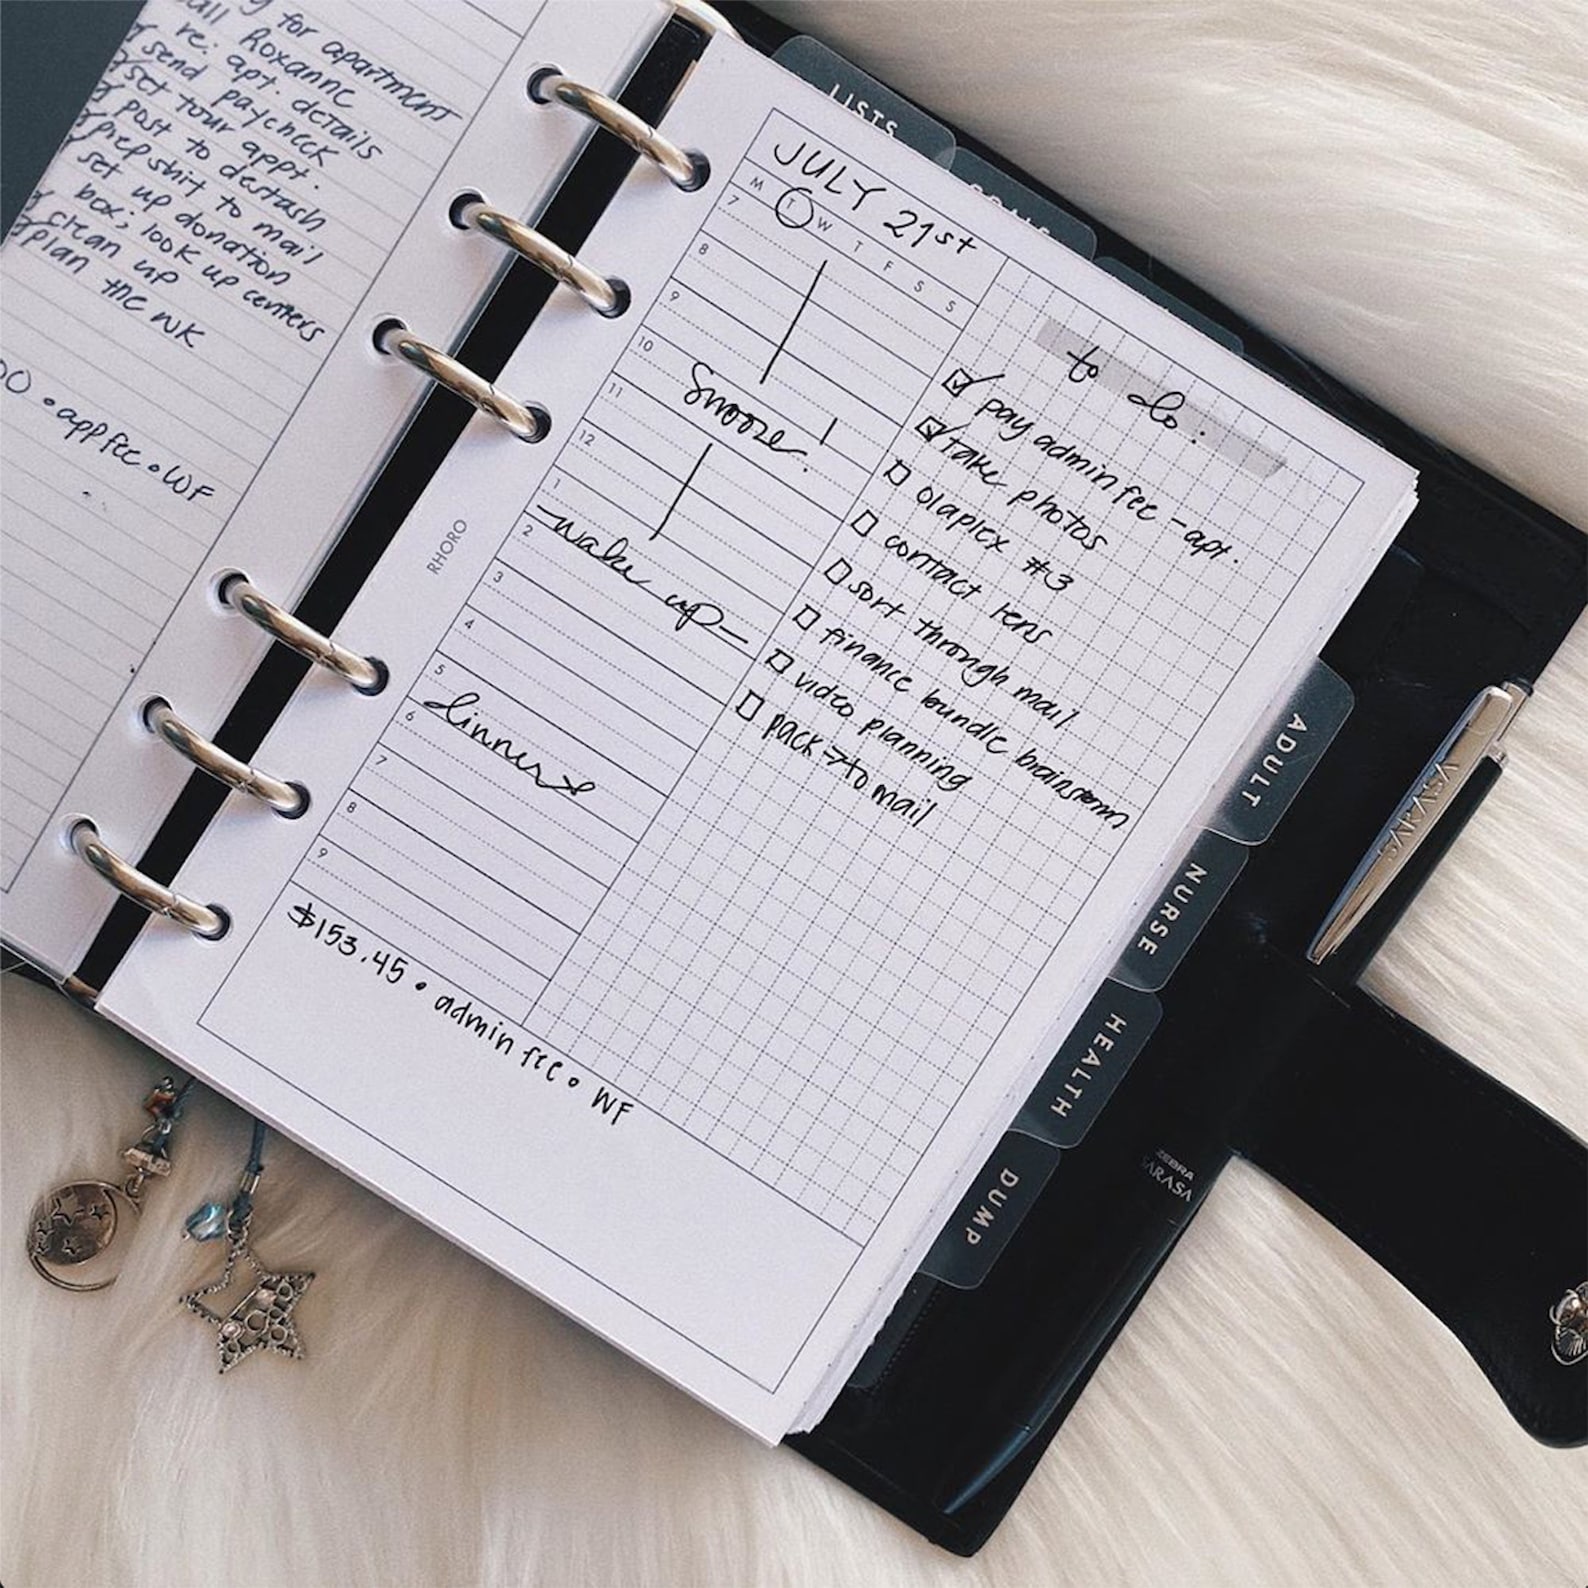 g for apartment
call Roxanne
re: apt. details
send paycheck
set tour appt.
post to destash
prep shit to mail
set up donation
box; look up centers
clean up
plan the WK
• app fee • WF
RHORO
JULY 21st
M T W T F S S
7
8
9
10
Snooze.
11
12
1
2
-wake up-
3
4
5
6
dinner
7
8
9
$153.45 • admin fee • WF
to do:
pay admin fee - apt.
take photos
olaplex #3
contact lens
sort through mail
finance bundle brainstorm
video planning
pack → to mail
LISTS
ADULT
NURSE
HEALTH
DUMP
SARASA
ZEBRA
SARASA